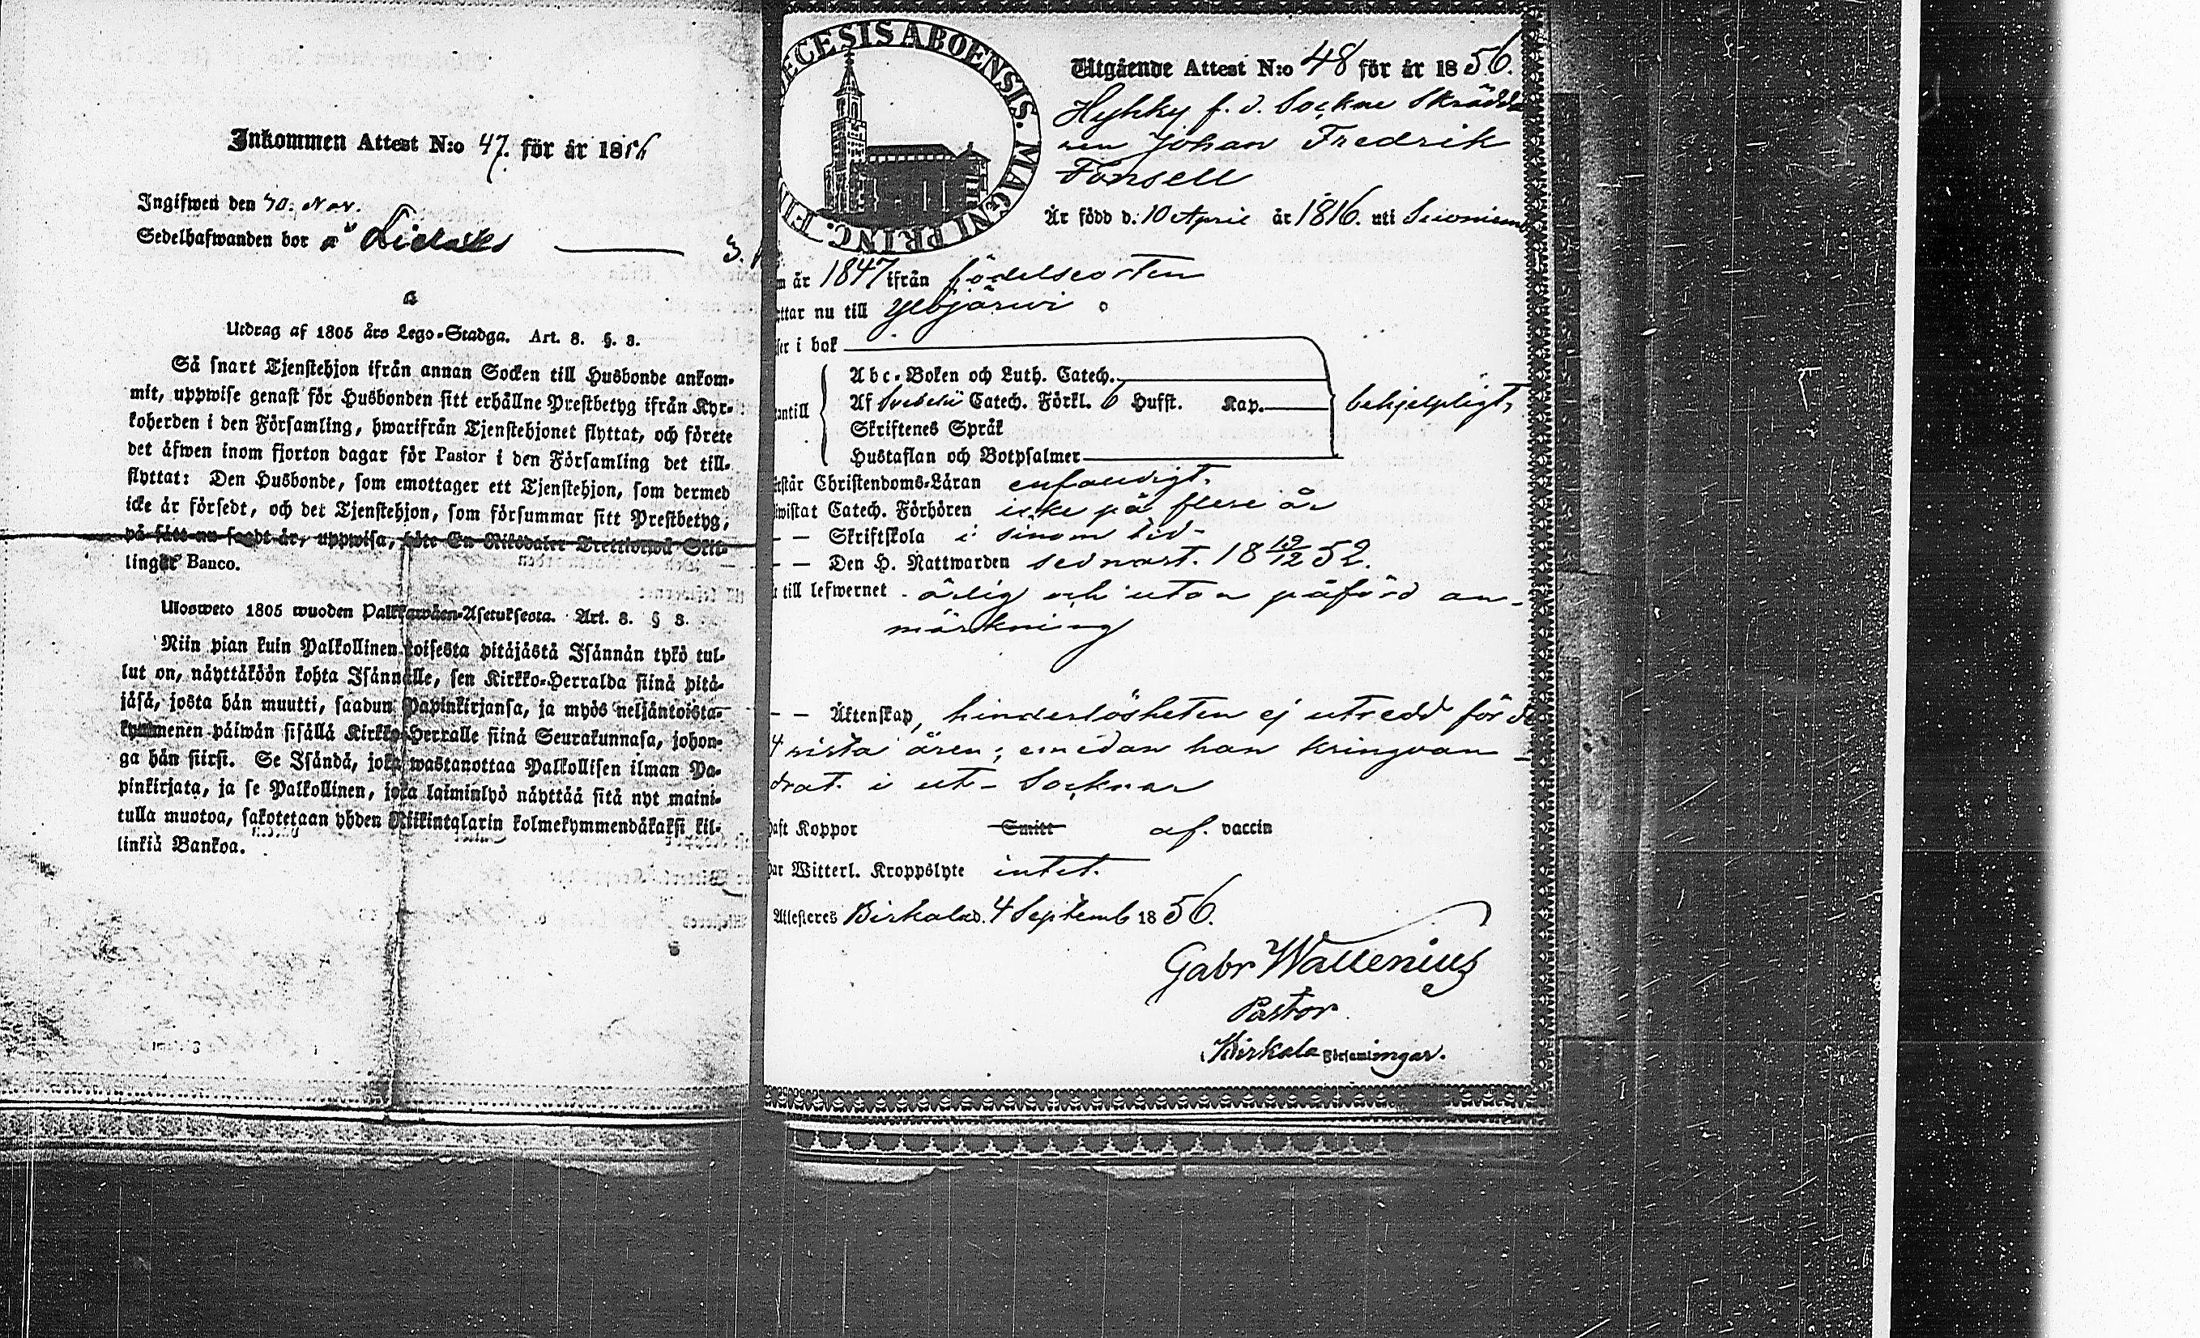 Inkommen Attest N:o 47. för år 1856
Ingifwen den 30. Nov.
Sedelhafwanden bor å
Utdrag af 1805 års Lego-Stadga. Art. 8. §. 8.
Så snart Tjenstehjon ifrån annan Socken till Husbonde ankom-
mit, uppwise genast för Husbonden sitt erhållne Prestbetyg ifrån Kyr-
koherden i den Församling, hwarifrån Tjenstehjonet flyttat, och förete
det äfwen inom fjorton dagar för Pastor i den Församling det till-
flyttat: Den Husbonde, som emottager ett Tjenstehjon, som dermed
icke är försedt, och det Tjenstehjon, som försummar sitt Prestbetyg,
på sätt nu sagdt är, uppwisa, böte En Riksdaler Trettiotwå Skil-
lingar Banco.
Ulosweto 1805 wuoden Palkkawäen-Asetuksesta. Art. 8. § 8.
Niin pian kuin Palkollinen toisesta pitäjästä Isännän tykö tul-
lut on, näyttäköön kohta Isännälle, sen Kirkko-Herralda siinä pitä-
jäsä, josta hän muutti, saadun Papinkirjansa, ja myös neljäntoista-
kymmenen päiwän sisällä Kirkko-Herralle siinä Seurakunnasa, johon-
ga hän siirsi. Se Isändä, joka wastanottaa Palkollisen ilman Pa-
pinkirjata, ja se Palkollinen, joka laiminlyö näyttää sitä nyt maini-
tulla muotoa, sakotetaan yhden Riikintalarin kolmekymmendäkaksi kil-
linkiä Bankoa.
ECESIS ABOENSIS. MAGNI PRINC. FI
Utgående Attest N:o 48 för år 1856.
Hyhky f. d. Sockne Skrädda
ren Johan Fredrik
Fonsell
Är född d. 10 April år 1816. uti Suoniemi
m år 1847 ifrån födelseorten
ttar nu till Ylöjärwi
ser i bok
Abc-Boken och Luth. Catech.
antill Af Svebelii Catech. Förkl. 6 Hufst. Kap. behjelpligt,
Skriftenes Språk
Hustaflan och Botpsalmer
rstår Christendoms-Läran enfaldigt,
wistat Catech. Förhören icke på flere år
— — Skriftskola i sinom tid
— — Den H. Nattwarden sednast. 18 19/12 52.
till lefwernet ärlig och utan påförd an-
märkning
— — Äktenskap, hinderlösheten ej utredd för de
4 sista åren; emedan han kringvan-
drat i ut-Socknar
haft Koppor Smitt af. vaccin
har Witterl. Kroppslyte intet.
Attesteres Birkala d. 4 Septemb 1856.
Gabr Wallenius
Pastor
Birkala Församlingar.